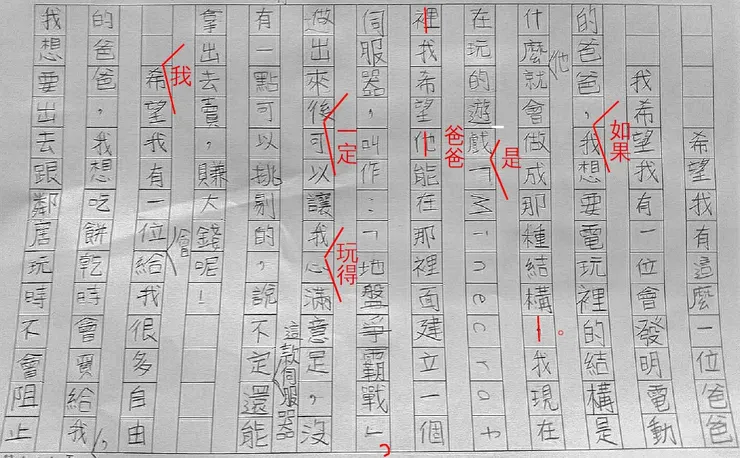 希望我有這麼一位爸爸
我希望我有一位會發明電動
的爸爸，如果我想要電玩裡的結構是
什麼他就會做成那種結構。我現在
在玩的遊戲是「Minecraft
裡我希望爸爸他能在那裡面建立一個
伺服器，叫作：「地盤爭霸戰」
做出來後一定可以讓我玩得心滿意足，沒
有一點可以挑剔的，說不定這款伺服器還能
拿出去賣，賺大錢呢！
我希望我有一位會給我很多自由
的爸爸，我想吃餅乾時會買給我，
我想要出去跟鄰居玩時不會阻止